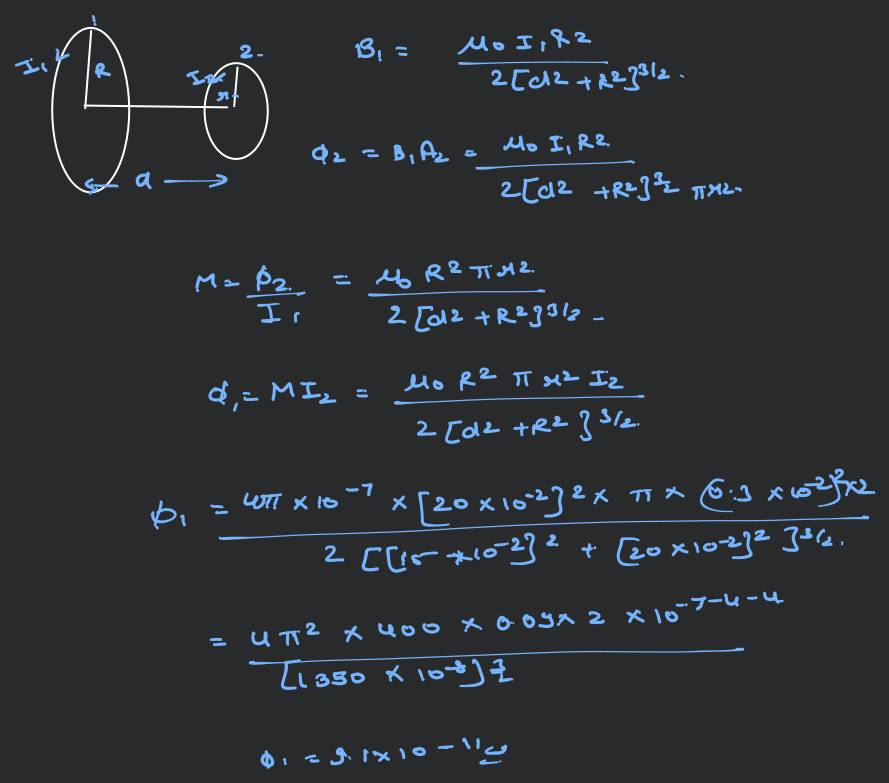 1
I₁ R
2
I₂ r
d
B₁ = μ₀ I₁ R² / 2[d² + R²]^3/2.
φ₂ = B₁A₂ = μ₀ I₁ R² / 2[d² + R²]^3/2 πr².
M = φ₂ / I₁ = μ₀ R² π r² / 2[d² + R²]^3/2
φ₁ = M I₂ = μ₀ R² π r² I₂ / 2[d² + R²]^3/2.
φ₁ = 4π × 10⁻⁷ × [20 × 10⁻²]² × π × (0.3 × 10⁻²)² × 2 / 2[[15 × 10⁻²]² + [20 × 10⁻²]²]^3/2.
= 4π² × 400 × 0.09 × 2 × 10^-7-4-4
φ₁ = 9.1 × 10⁻¹¹ω